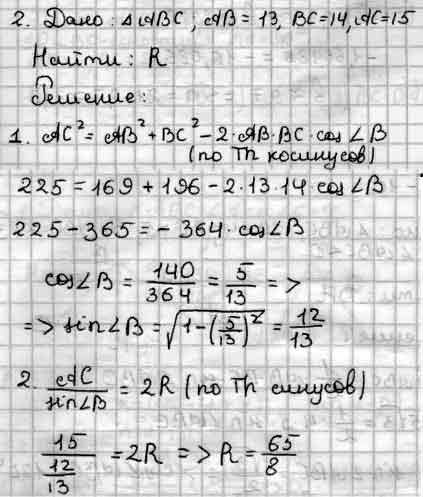 2. Дано: △ABC; AB = 13, BC=14, AC=15
Найти: R
Решение:
1. AC² = AB² + BC² - 2·AB·BC·cos∠B
(по Th косинусов)
225 = 169 + 196 - 2·13·14·cos∠B
225 - 365 = - 364·cos∠B
cos∠B = 140/364 = 5/13 =>
=> sin∠B = √(1-(5/13)²) = 12/13
2. AC/sin∠B = 2R (по Th синусов)
15/(12/13) = 2R => R = 65/8